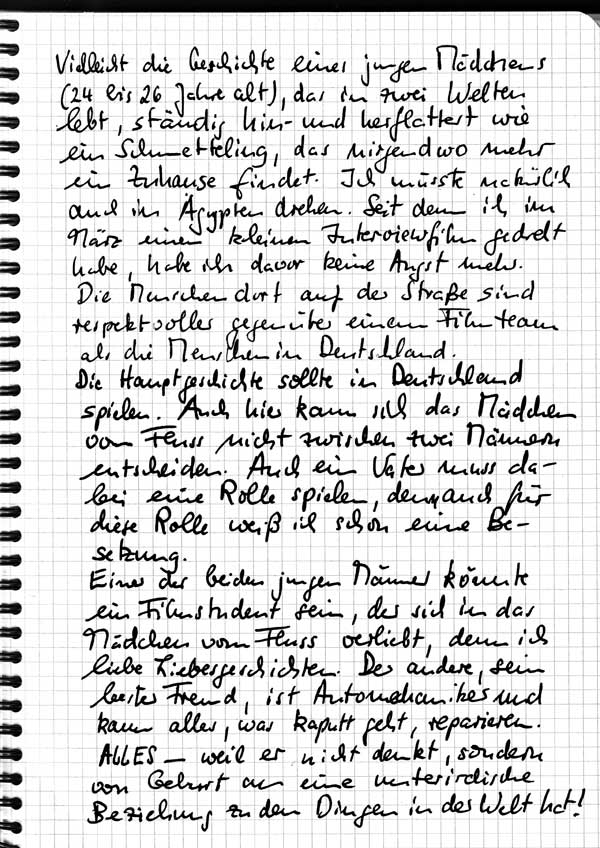 Vielleicht die Geschichte eines jungen Mädchens
(24 bis 26 Jahre alt), das in zwei Welten
lebt, ständig hin- und herflattert wie
ein Schmetterling, das nirgendwo mehr
ein Zuhause findet. Ich müsste natürlich
auch in Ägypten drehen. Seit dem ich im
März einen kleinen Interviewfilm gedreht
habe, habe ich davor keine Angst mehr.
Die Menschen dort auf der Straße sind
respektvoller gegenüber einem Filmteam
als die Menschen in Deutschland.
Die Hauptgeschichte sollte in Deutschland
spielen. Auch hier kann sich das Mädchen
vom Fluss nicht zwischen zwei Männern
entscheiden. Auch ein Vater muss da-
bei eine Rolle spielen, denn auch für
diese Rolle weiß ich schon eine Be-
setzung.
Einer der beiden jungen Männer könnte
ein Filmstudent sein, der sich in das
Mädchen vom Fluss verliebt, denn ich
liebe Liebesgeschichten. Der andere, sein
bester Freund, ist Automechaniker und
kann alles, was kaputt geht, reparieren.
ALLES – weil er nicht denkt, sondern
von Geburt an eine unterirdische
Beziehung zu den Dingen in der Welt hat!